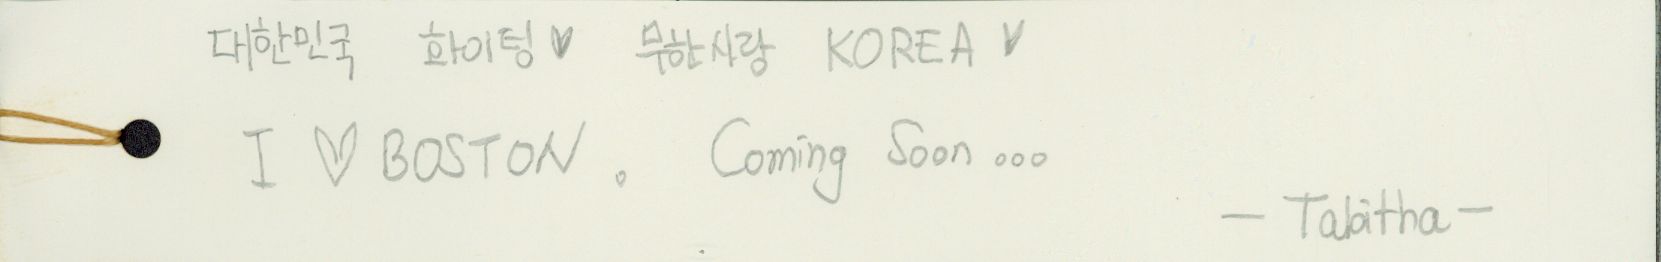 대한민국 화이팅♥ 무한사랑 KOREA ♥
I ♡ BOSTON. Coming Soon...
- Tabitha -